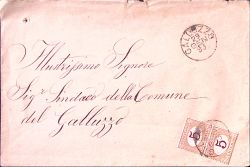 GALLUZZO
Illustrissimo Signore
Sig.r Sindaco della Comune
del Galluzzo
5 5